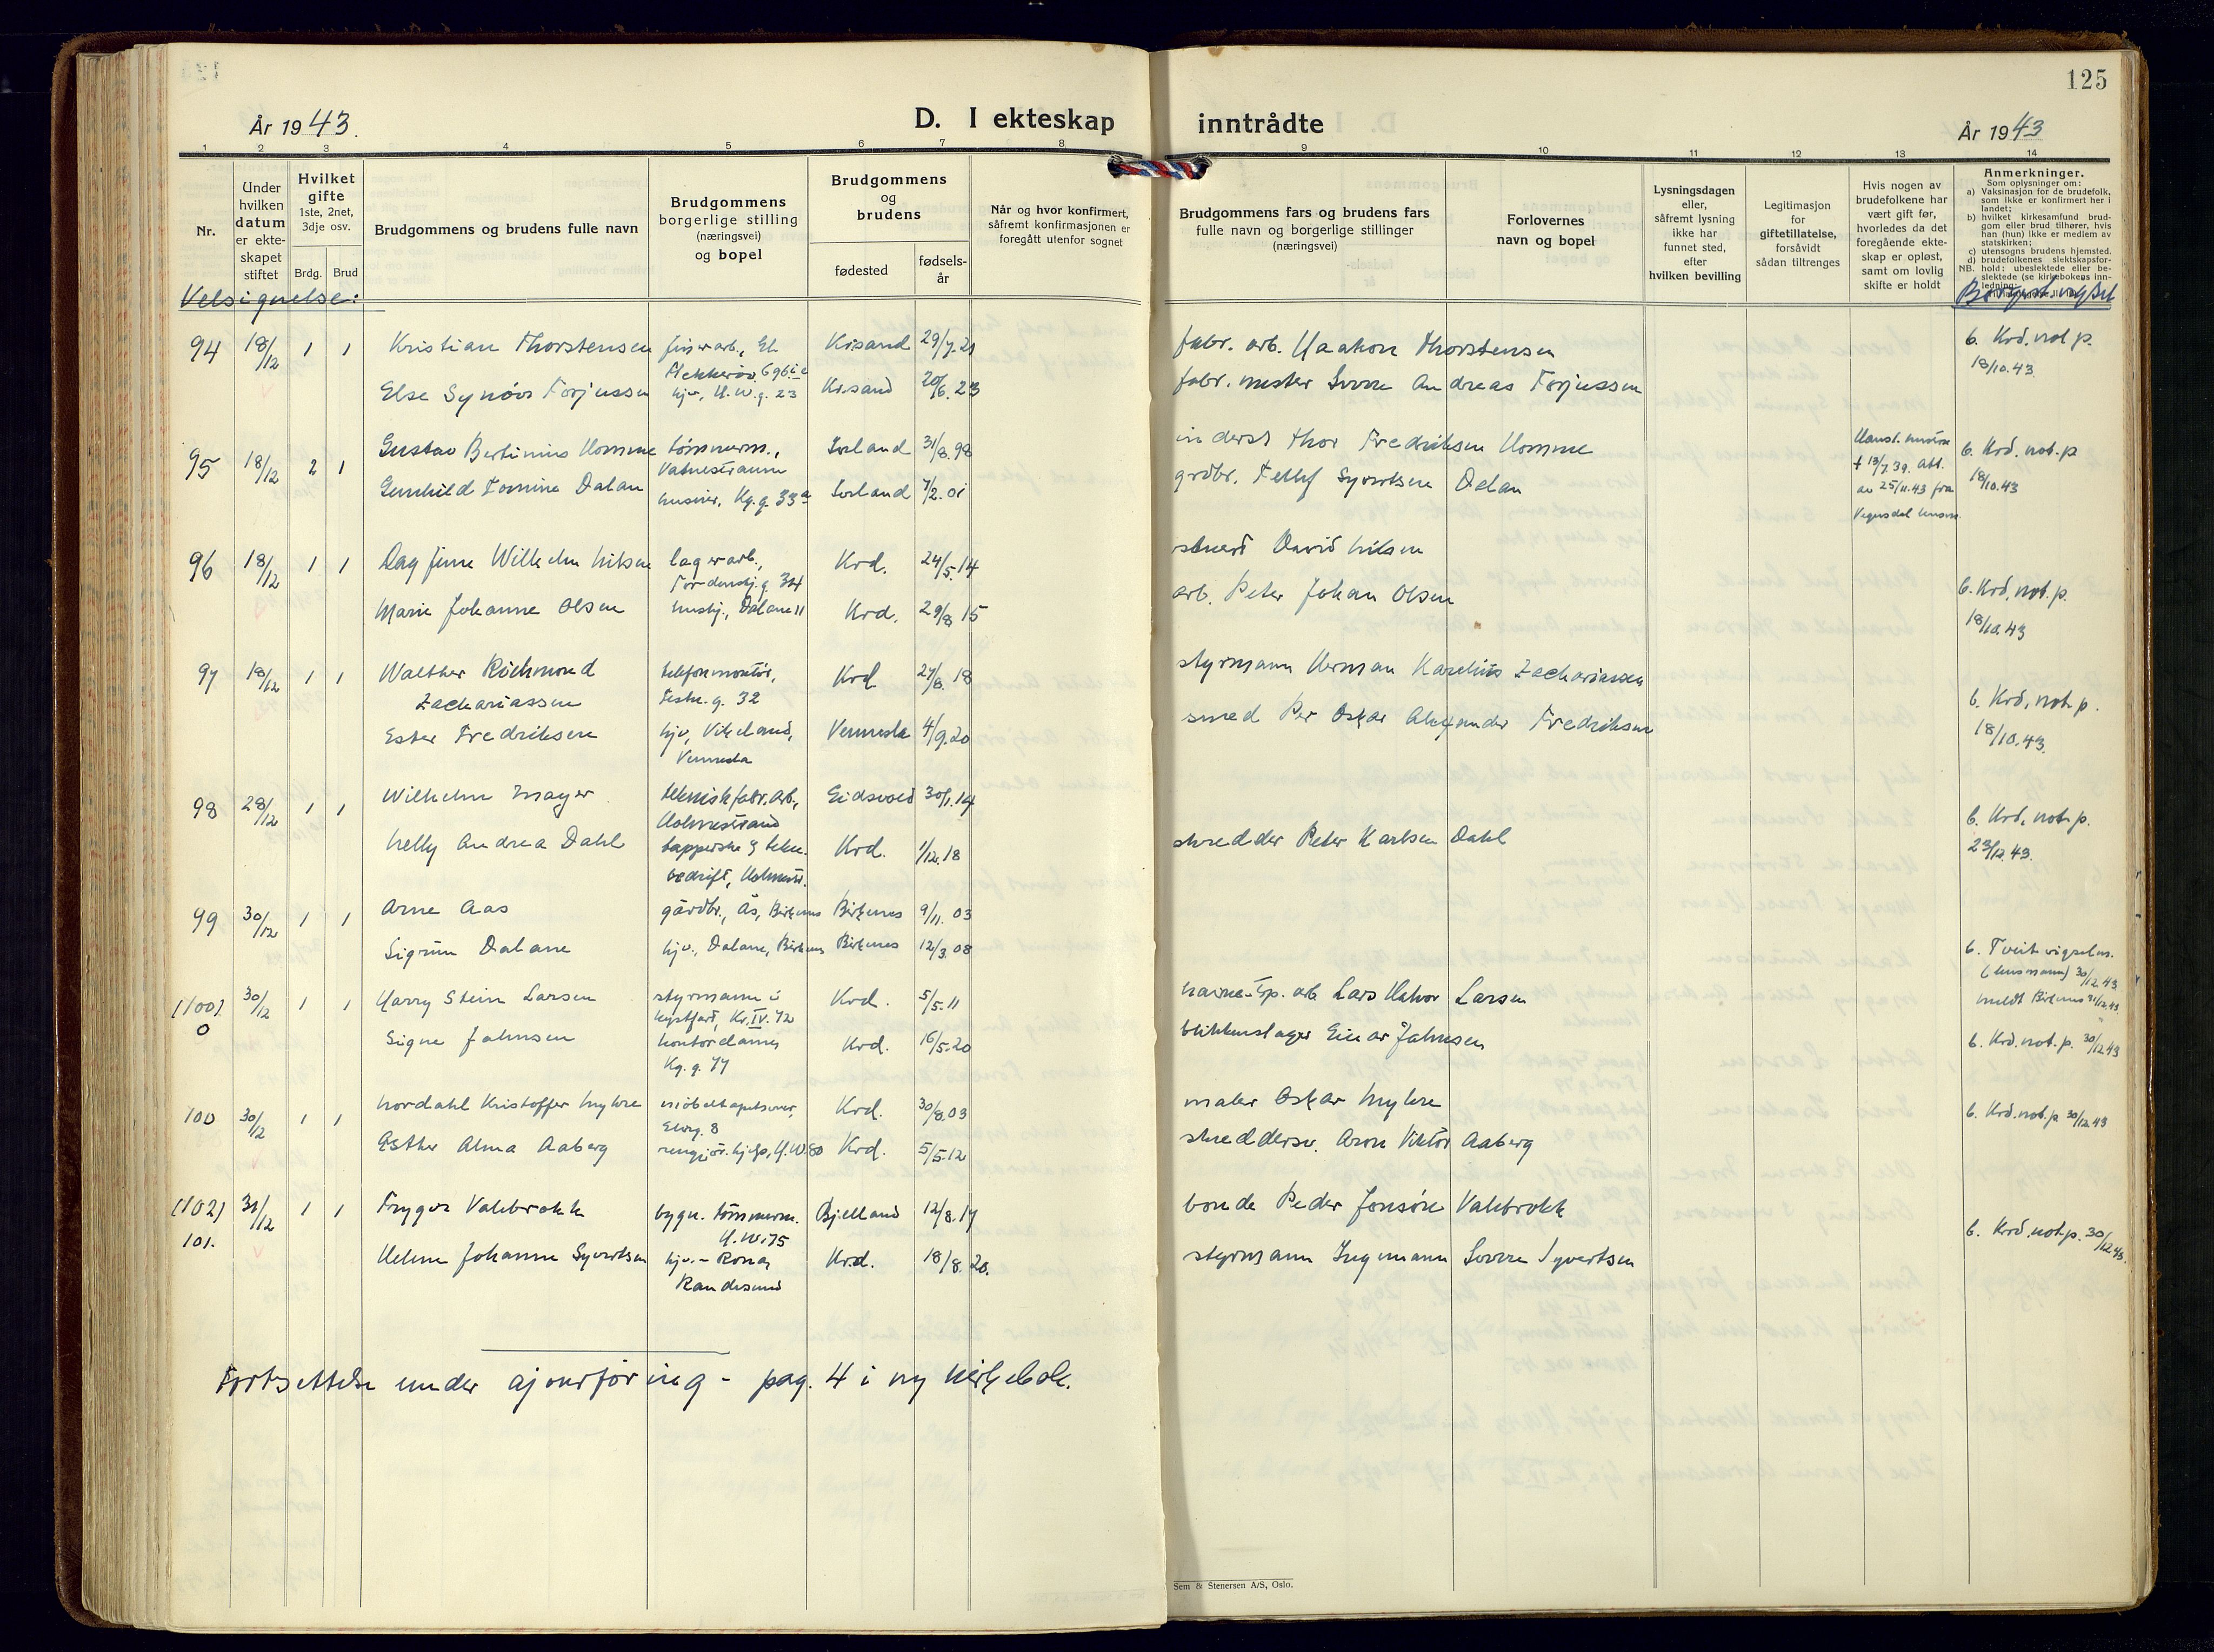 125
År 1943.
D. I ekteskap inntrådte
År 1943
1 2 3 4 5 6 7 8 9 10 11 12 13 14
Nr.
Under hvilken datum er ekteskapet stiftet
Hvilket gifte 1ste, 2net, 3dje osv.
Brdg. Brud
Brudgommens og brudens fulle navn
Brudgommens borgerlige stilling (næringsvei) og bopel
Brudgommens og brudens
fødested
fødselsår
Når og hvor konfirmert, såfremt konfirmasjonen er foregått utenfor sognet
Brudgommens fars og brudens fars fulle navn og borgerlige stillinger (næringsvei)
Forlovernes navn og bopel
Lysningsdagen eller, såfremt lysning ikke har funnet sted, efter hvilken bevilling
Legitimasjon for giftetillatelse, forsåvidt sådan tiltrenges
Hvis nogen av brudefolkene har vært gift før, hvorledes da det foregående ekteskap er opløst, samt om lovlig skifte er holdt
Anmerkninger.
Som oplysninger om:
a) Vaksinasjon for de brudefolk, som ikke er konfirmert her i landet;
b) hvilket kirkesamfund brudgom eller brud tilhører, hvis han (hun) ikke er medlem av statskirken;
c) utensogns brudens hjemsted.
d) brudefolkenes slektskapsforhold; ubeslektede eller beslektede (se kirkebokens innledning
NB.
Velsignelse:
94 18/12 1 1 Kristian Thorstensen
Kr.sand 29/7.21
fabr. arb. Haakon Thorstensen
b. Krd. not. p.
18/10.43
Else Synöve Torjussen
hjv., H.W.g. 23
Kr.sand 20/6.23
fabr. mester Sverre Andreas Torjussen
95 18/12 2 1 Gustav Bertinius Homme
tømmerm.,
Vatnestraum
Iveland 31/8.98
inderst Thor Fredriksen Homme
† 13/7.39. Att.
av 25/11.43 fra
b. Krd. not. p
18/10.43
Gunhild Tomine Dalan
husvor, Kg.g. 33a
Iveland 7/2.01
grdbr. Tellef Syvertsen Dalan
96 18/12 1 1 Dag Finn Wilhelm Nilsen
lagerarb.,
Tordenskj.g. 34
Krd. 24/5.14
stuert David Nilsen
Marie Johanne Olsen
hushj., Dalane 11
Krd. 29/8 15
arb. Peter Johan Olsen
b. Krd. not. p.
18/10.43
97 18/12 1 1 Walther Richmond
Zachariassen
telefonmontör,
Festn.g. 32
Krd 27/8.18
styrmann Herman Karelius Zachariassen
b. Krd. not. p.
18/10.43.
Ester Fredriksen
hjv, Vikeland,
Vennesla
Vennesla 4/9.20
smed Per Oskar Alexander Fredriksen
98 28/12 1 1 Wilhelm Mayer
teknisk fabr.arb.,
Holmestrand
Eidsvold 30/1.14
b. Krd. not. p.
23/12.43.
Nelly Andrea Dahl
tapperske
bedrift, Holmestr.
Krd. 1/12.18
skredder Peter Karlsen Dahl
99 30/12 1 1 Arne Aas
gårdbr., Ås, Birkenes
Birkenes 9/11.03
Sigrun Dalane
hjv., Dalane, Birkenes
Birkenes 12/3.08
b. Tveit vigselsm.
(lensmann) 30/12.43
meldt Birkenes 31/12.43
(100) 30/12 1 1 Harry Stein Larsen
0
styrmann i
kystfart, Kr.IV. 72
Krd. 5/5.11
havne-insp. arb Lars Halvor Larsen
Signe Jahnsen
kontordame,
Kg. g. 77
Krd. 16/5.20
blikkenslager Einar Jahnsen
b. Krd. not. p. 30/12.43
100 30/12 1 1 Nordahl Kristoffer Myhre
möbeltapetserer,
Elvg. 8
Krd. 30/8.03
maler Oskar Myhre
b. Krd. not. p 30/12.43
Esther Alma Aaberg
rengjør.hjelp, H.W. 80
Krd. 5/5.12
skreddersv. Aron Viktor Aaberg
(102) 31/12 1 1 Trygve Valebrokk
101.
bygn. tömmerm.
H.W. 75
Bjelland 12/8.17
bonde Peder Jonsön Valebrokk
b. Krd. not. p. 30/12.43.
Helene Johanne Syvertsen
hjv. - Rona,
Randesund
Krd. 18/8.20.
styrmann Ingemann Sverre Syvertsen
Fortsettelse under ajourføring - pag. 4 i ny kirkebok.
Sem & Stenersen A/S, Oslo.